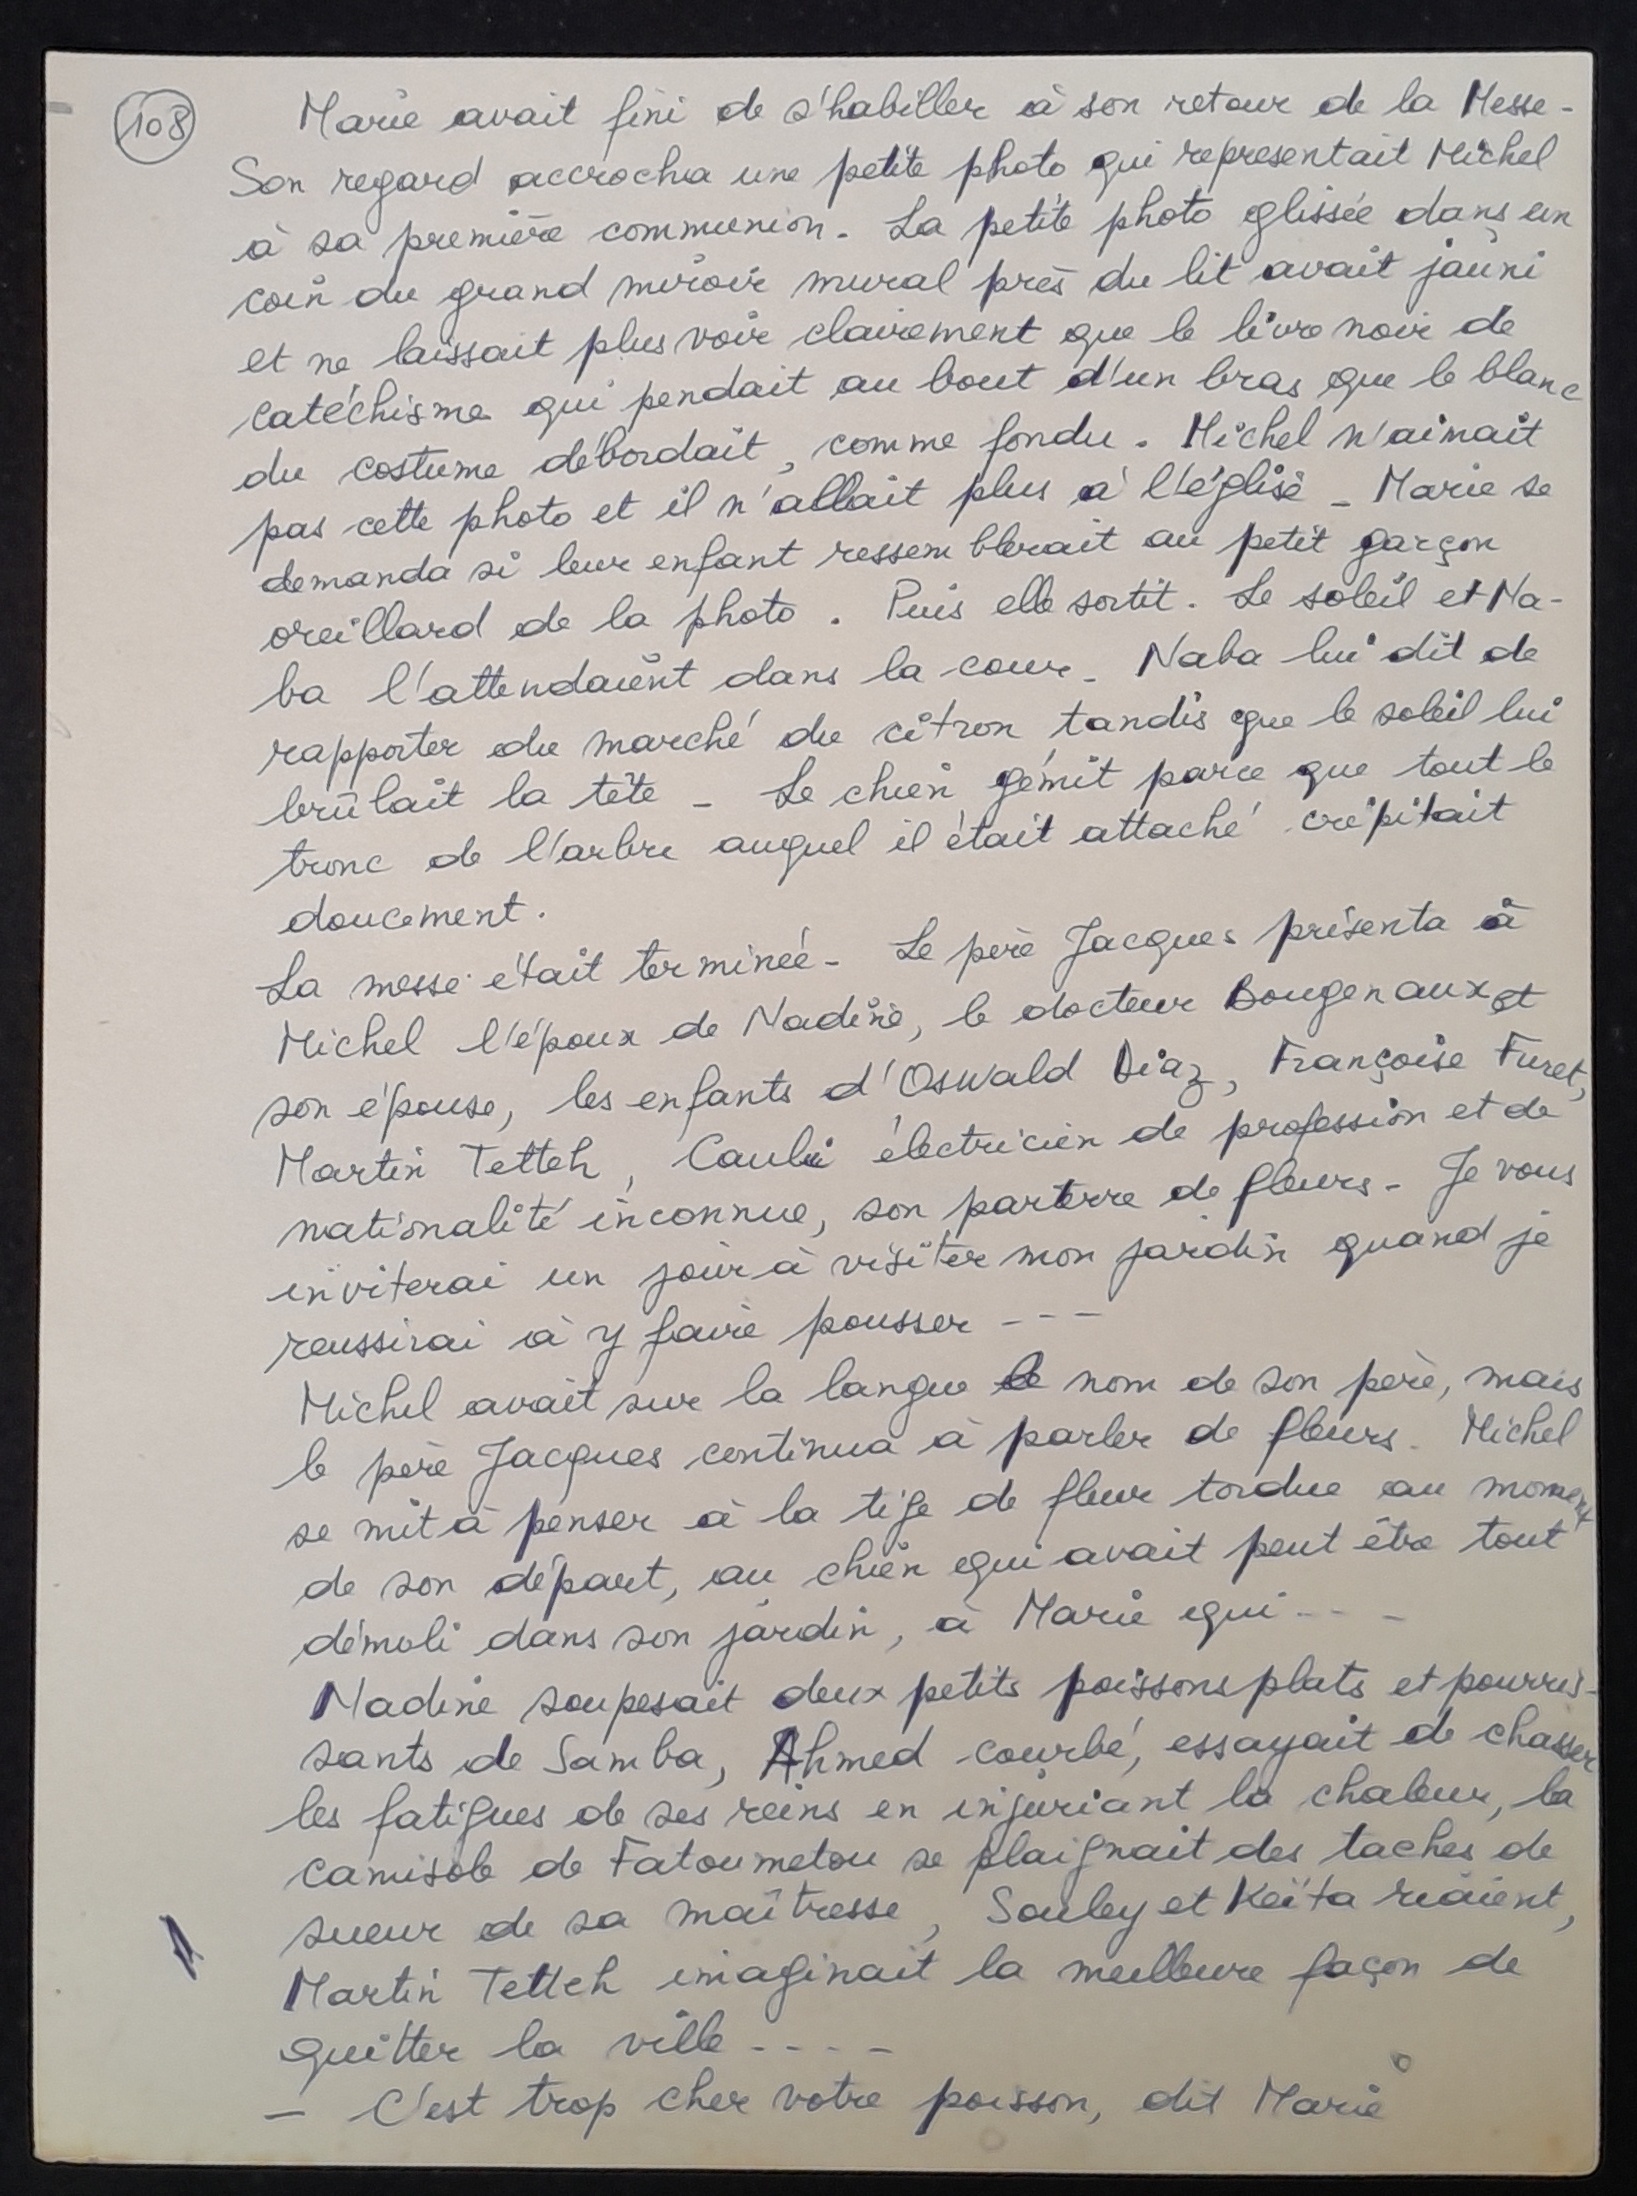 108
Marie avait fini de s'habiller à son retour de la Messe -
Son regard accrocha une petite photo qui representait Michel
à sa première communion. La petite photo glissée dans un
coin du grand miroir mural près du lit avait jauni
et ne laissait plus voir clairement que le livre noir de
catéchisme qui pendait au bout d'un bras que le blanc
du costume débordait, comme fondu. Michel n'aimait
pas cette photo et il n'allait plus à l'église - Marie se
demanda si leur enfant ressemblerait au petit garçon
oreillard de la photo. Puis elle sortit. Le soleil et Na-
ba l'attendaient dans la cour - Naba lui dit de
rapporter du marché du citron tandis que le soleil lui
brûlait la tête - Le chien gémit parce que tout le
tronc de l'arbre auquel il était attaché crépitait
doucement.
La messe était terminée - Le père Jacques présenta à
Michel l'époux de Nadine, le docteur Bougenaux et
son épouse, les enfants d'Oswald Diaz, Françoise Furet,
Martin Tetteh, Caulii électricien de profession et de
nationalité inconnue, son parterre de fleurs - Je vous
inviterai un jour à visiter mon jardin quand je
reussirai à y faire pousser ---
Michel avait sur la langue le nom de son père, mais
le père Jacques continua à parler de fleurs. Michel
se mit à penser à la tige de fleur tordue au moment
de son départ, au chien qui avait peut être tout
démoli dans son jardin, à Marie qui ---
Nadine soupesait deux petits poissons plats et pourris-
sants de Samba, Ahmed courbé, essayait de chasser
les fatigues de ses reins en injuriant la chaleur, la
camisole de Fatoumetou se plaignait des taches de
sueur de sa maîtresse, Souley et Keïta riaient,
Martin Tetteh imaginait la meilleure façon de
quitter la ville ----
- C'est trop cher votre poisson, dit Marie